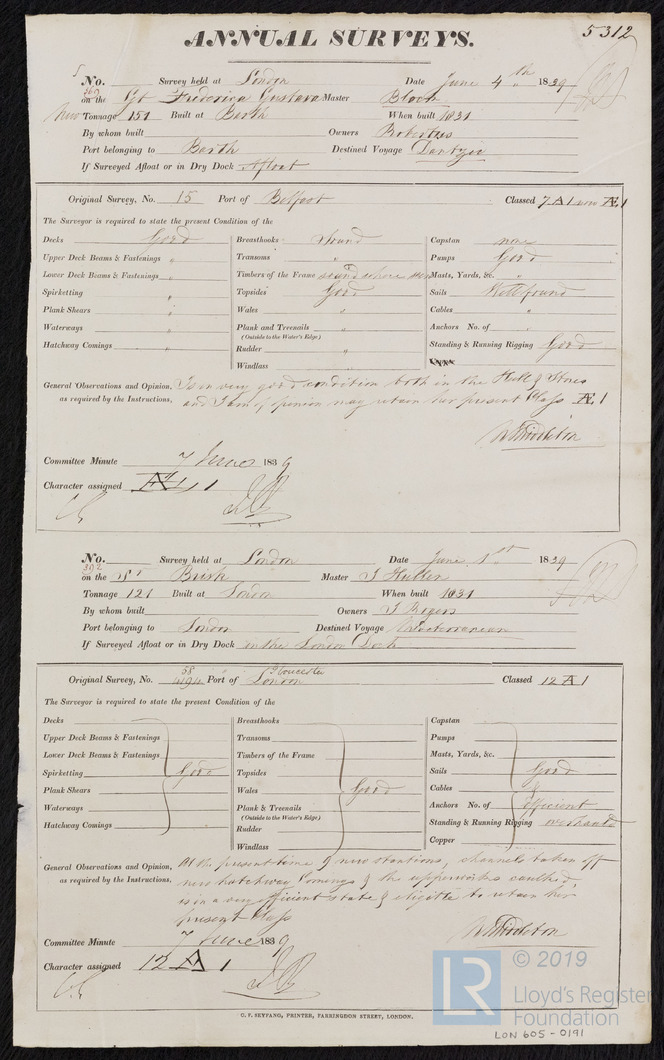 5312
ANNUAL SURVEYS.
5
No. Survey held at London Date June 4th 1839
367
on the Frederica Gustava Master Bloom
New Tonnage 151 Built at Barth When built 1831
By whom built Owners
Port belonging to Barth Destined Voyage Dantzic
If Surveyed Afloat or in Dry Dock Afloat
Original Survey, No. 15 Port of Belfast Classed 7 A 1 now Æ 1
The Surveyor is required to state the present Condition of the
Decks Good Breasthooks Sound Capstan none
Upper Deck Beams & Fastenings " Transoms " Pumps Good
Lower Deck Beams & Fastenings " Timbers of the Frame sound where seen Masts, Yards, &c. "
Spirketting " Topsides Good Sails Well found
Plank Shears " Wales " Cables "
Waterways " Plank and Treenails " Anchors No. of "
(Outside to the Water's Edge.)
Hatchway Comings " Rudder " Standing & Running Rigging Good
Windlass
General Observations and Opinion, Is in very good condition both in the Hull & Stores
as required by the Instructions. and I am of opinion may retain her present Class Æ 1
W Middleton
Committee Minute 7 June 1839
Character assigned Æ 1
No. Survey held at London Date June 1st 1839
392
on the Brisk Master J Hullen
Tonnage 121 Built at London When built 1831
By whom built Owners J Rogers
Port belonging to London Destined Voyage Mediterranean
If Surveyed Afloat or in Dry Dock in the London Dock
58 Gloucester
Original Survey, No. Port of London Classed 12 A 1
The Surveyor is required to state the present Condition of the
Decks Breasthooks Capstan
Upper Deck Beams & Fastenings Transoms Pumps
Lower Deck Beams & Fastenings Timbers of the Frame Masts, Yards, &c.
Spirketting Good Topsides Sails Good
Plank Shears Wales Good Cables &
Waterways Plank & Treenails Anchors No. of efficient
(Outside to the Water's Edge.)
Hatchway Comings Rudder Standing & Running Rigging
Windlass Copper
General Observations and Opinion, At the present time 9 new stantions, channels taken off
as required by the Instructions. new hatchway Comings & the upperworks caulked,
is in a very efficient state & eligible to retain her
present Class
W Middleton
Committee Minute 7 June 1839
Character assigned 12 A 1
C. F. SEYFANG, PRINTER, FARRINGDON STREET, LONDON.
LR
© 2019
Lloyd's Register
Foundation
LON 605 - 0191